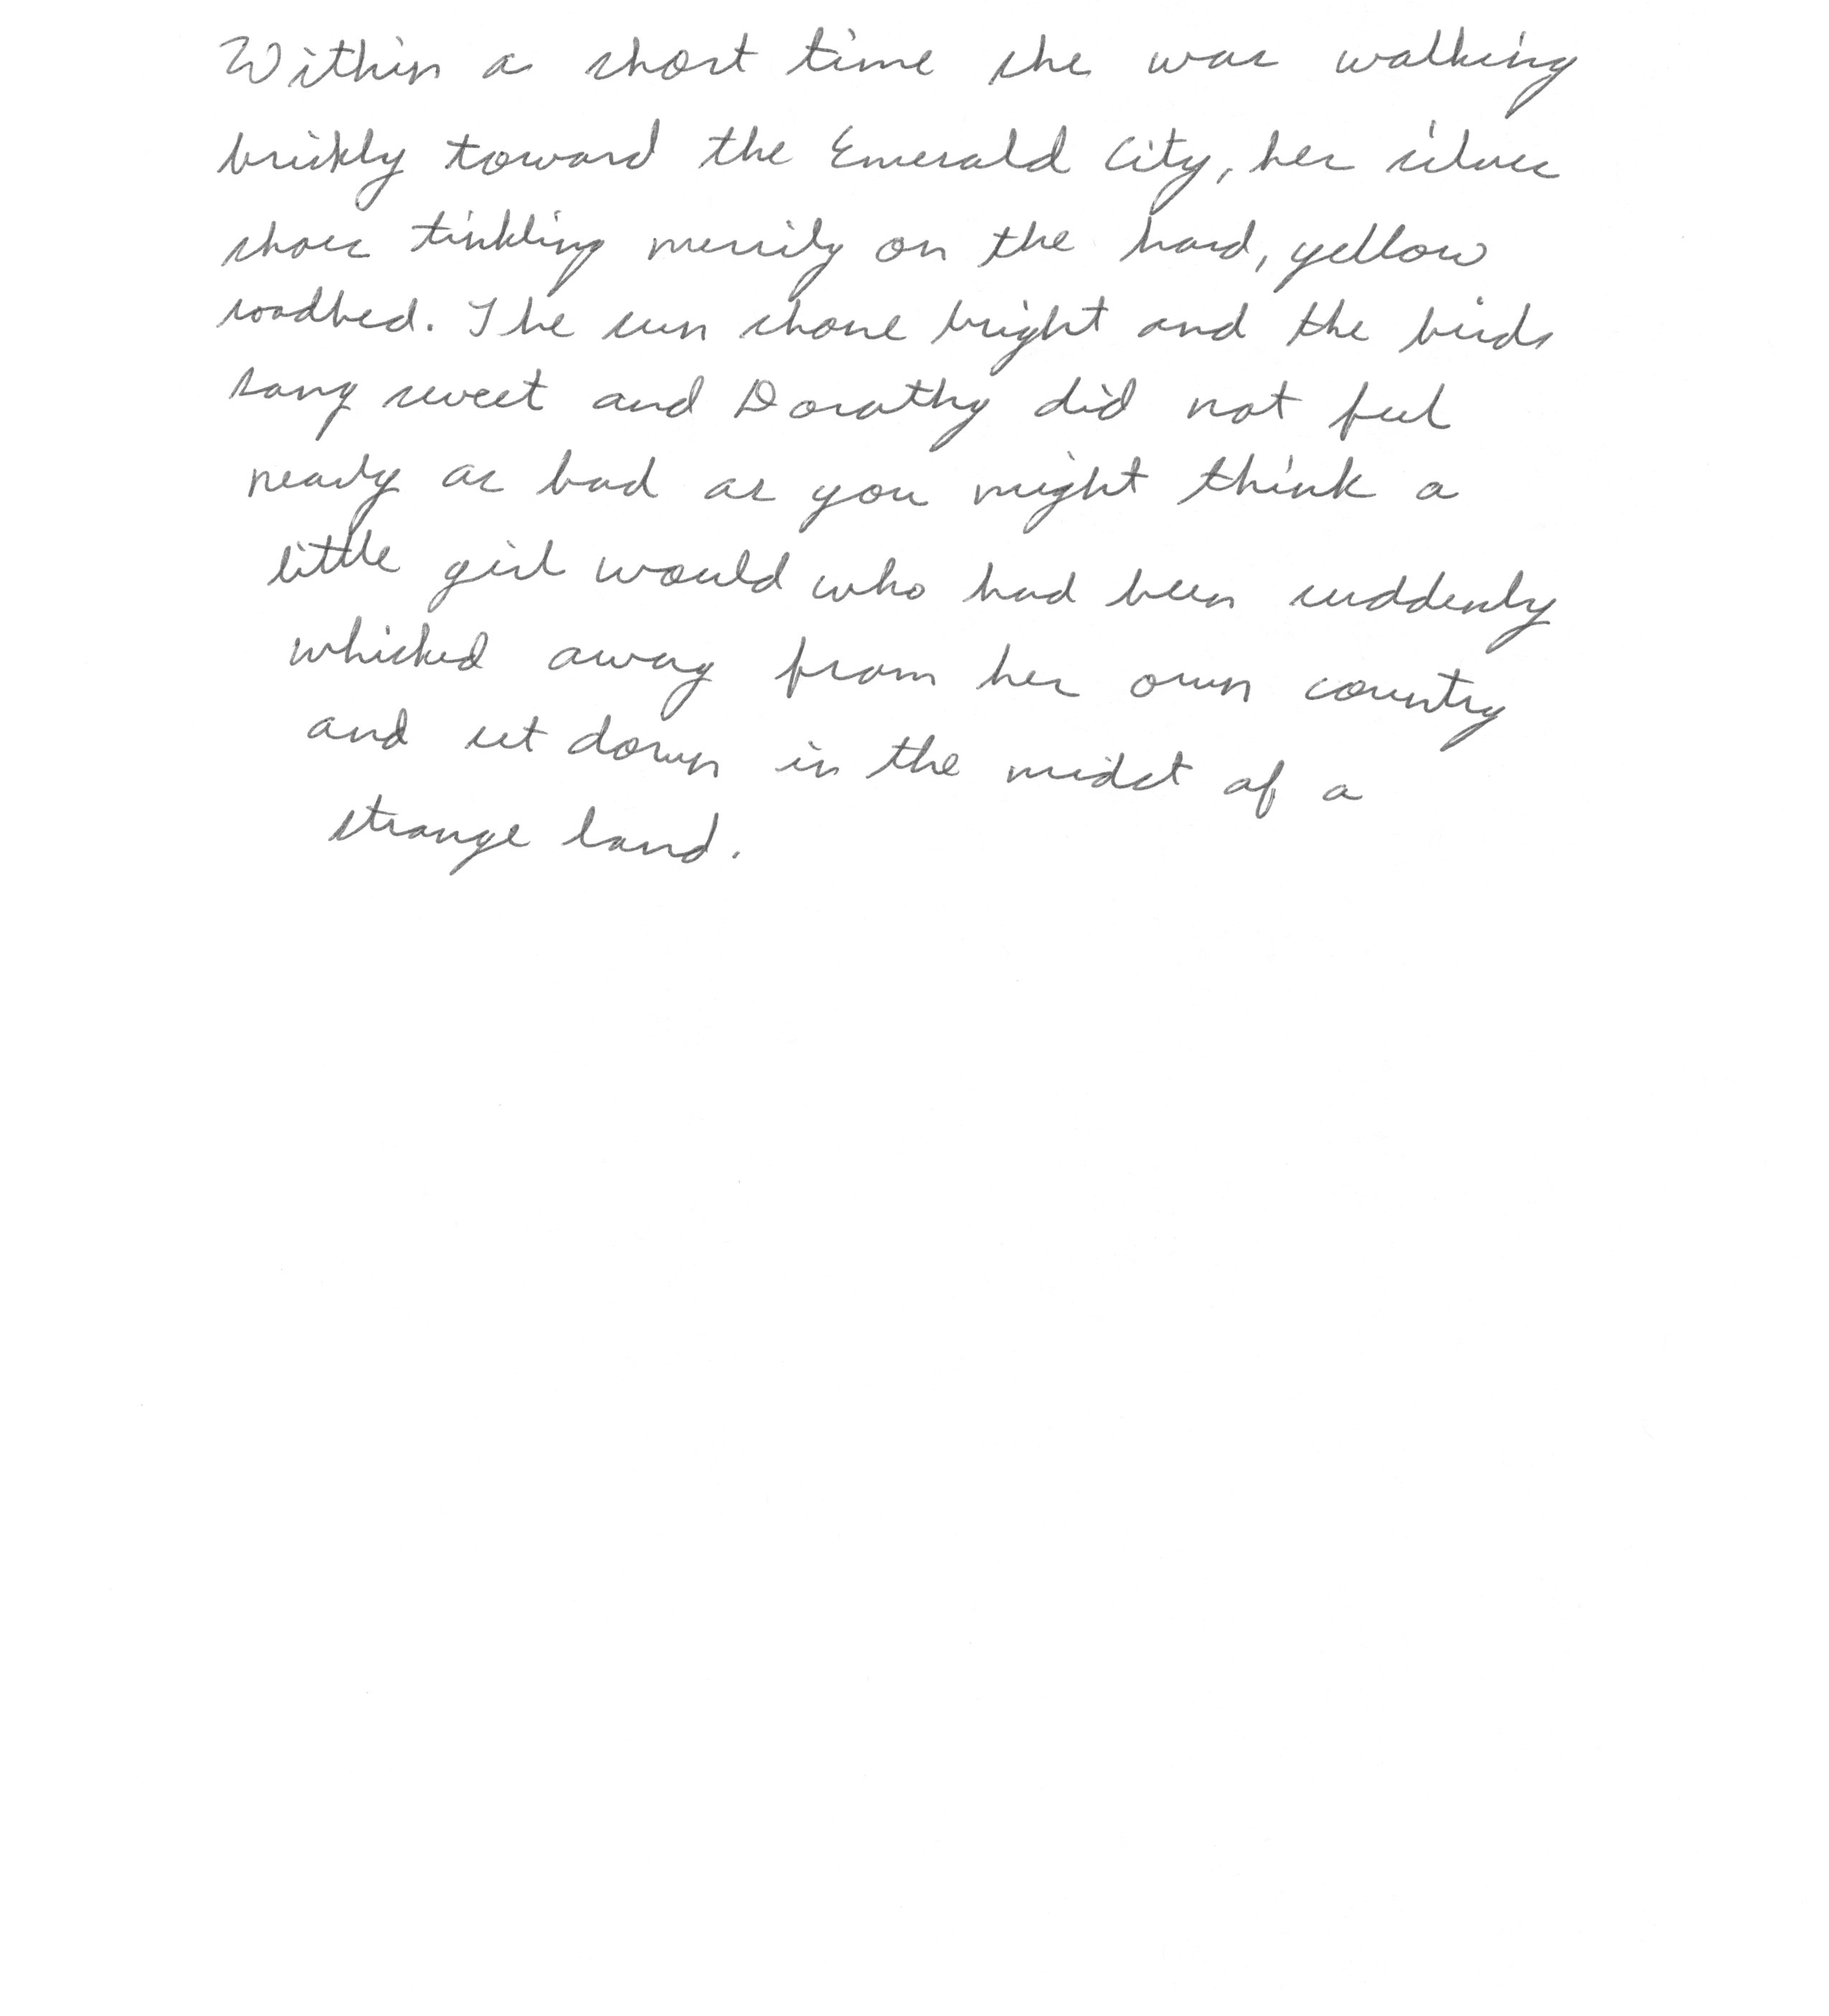 Within a short time she was walking
briskly toward the Emerald City, her silver
shoes tinkling merrily on the hard, yellow
roadbed. The sun shone bright and the birds
sang sweet and Dorothy did not feel
nearly as bad as you might think a
little girl would who had been suddenly
whisked away from her own country
and set down in the midst of a
strange land.